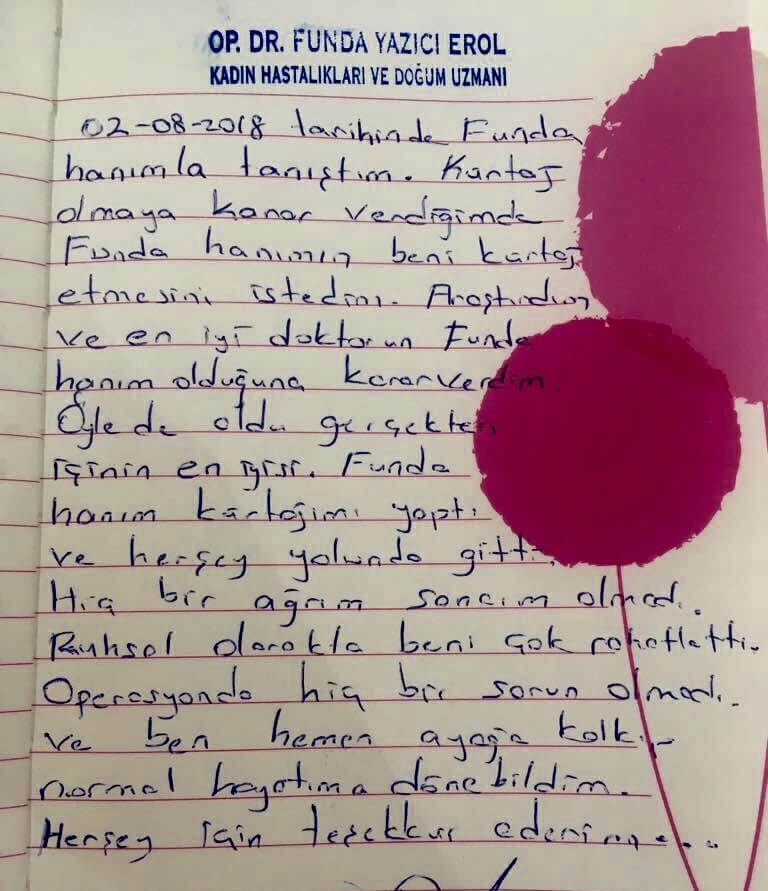 OP. DR. FUNDA YAZICI EROL
KADIN HASTALIKLARI VE DOĞUM UZMANI
02-08-2018 tarihinde Funda
hanımla tanıştım. Kürtaj
olmaya karar verdiğimde
Funda hanımın beni kürtaj
etmesini istedim. Araştırdım
ve en iyi doktorun Funda
hanım olduğuna karar verdim.
Öylede oldu gerçekten
işinin en iyisi. Funda
hanım kürtajımı yaptı
ve herşey yolunda gitti.
Hiç bir ağrım sancım olmadı.
Ruhsal olarakta beni çok rahatlattı.
Operasyonda hiç bir sorun olmadı.
ve ben hemen ayağa kalkıp
normal hayatıma dönebildim.
Herşey için teşekkür ederim...